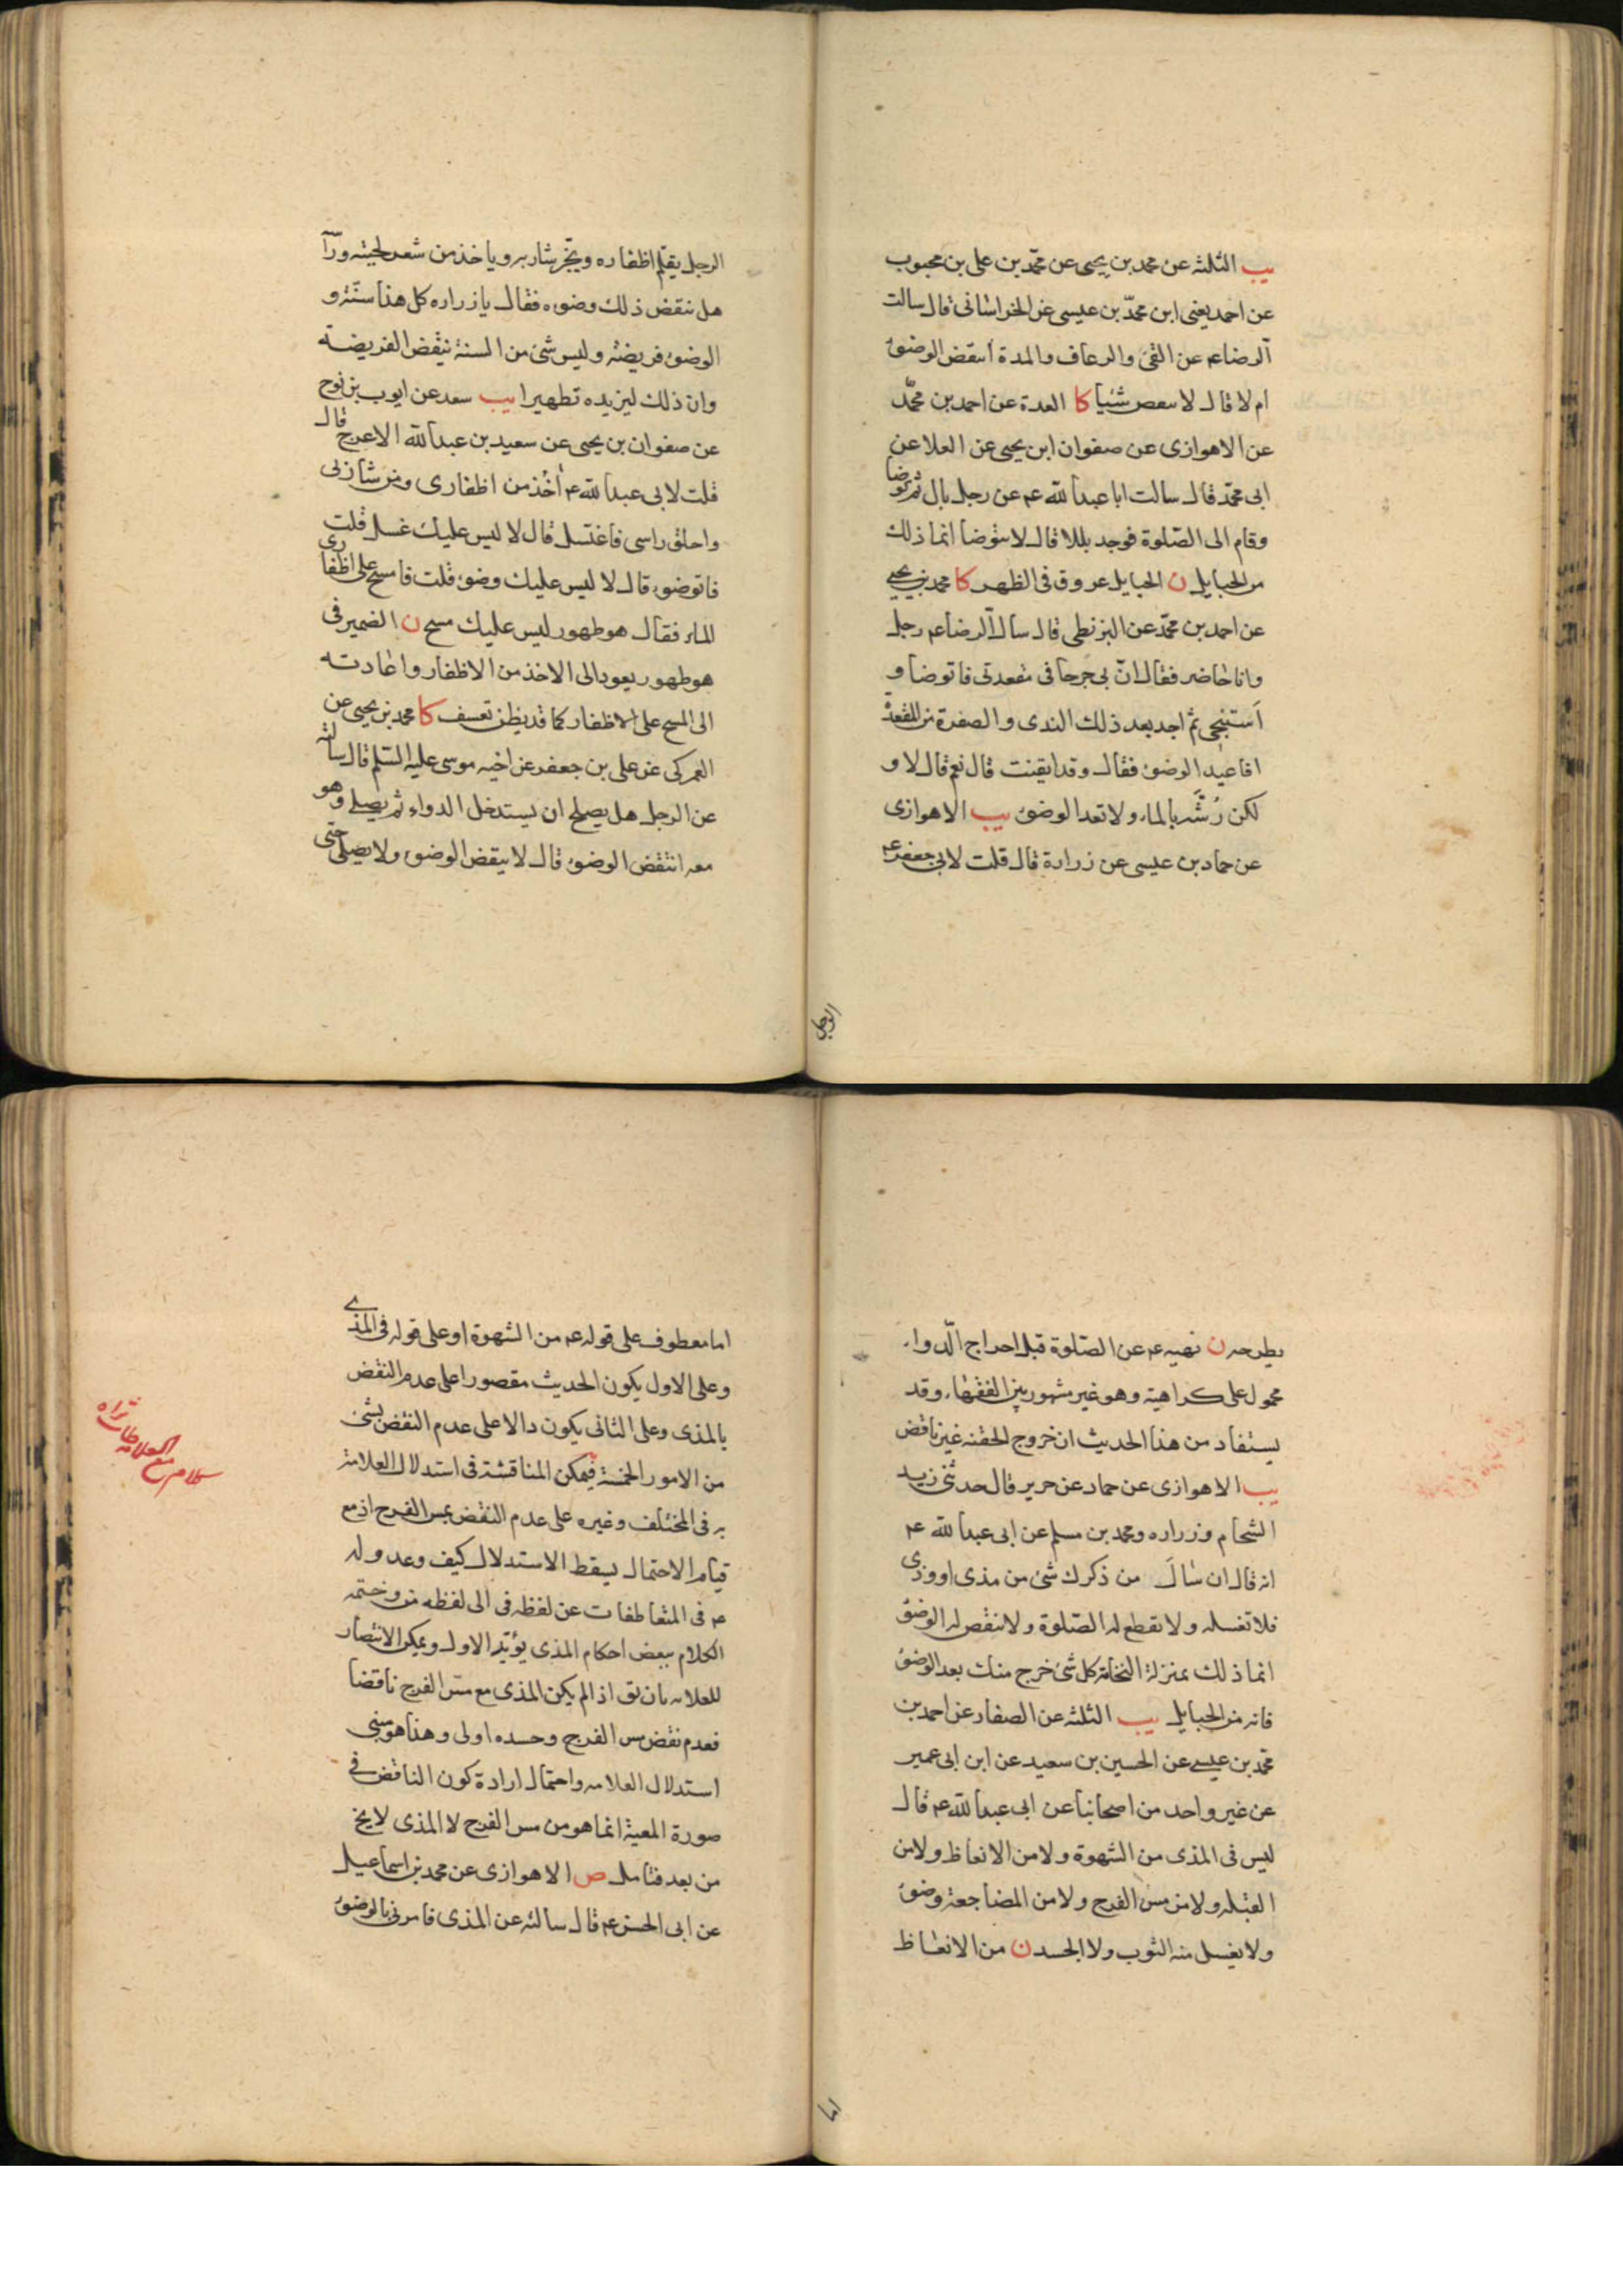 يب الثلثه عن محمد بن يحيى عن محمّد بن على بن محبوب
عن احمد يعنى ابن محمّد بن عيسى عن الخراسانى قال سالت
الرضا ع عن القئ والرعاف والمدة اتنقض الوضوء
ام لا قال لا سعص شئيا كا العدة عن احمد بن محمّد
عن الاهوازى عن صفوان ابن يحيى عن العلا عن
ابى محمّد قال سالت ابا عبدالله ع عن رجل بال ثم توضا
وقام الى الصّلوة فوجد بللا قال لا يتوضا انما ذلك
من الحبايل ن الحبايل عروق فى الظهر كا محمد بن يحيى
عن احمد بن محمّد عن البزنطى قال سال الرضا ع رجل
وانا حاضر فقال انّ بى جرحا فى مقعدتى فاتوضا و
اَستنجى ثم اجد بعد ذلك الندى والصفرة من المقعدة
افاعيد الوضوء فقال وقد ايقنت قال نعم قال لا و
لكن رُشَّه بالماء ولا تعد الوضوء يب الاهوازى
عن حماد بن عيسى عن زرارة قال قلت لابى جعفر ع
الرجل
الرجل يقلم اظفاره ويجز شاربه وياخذ من شعر لحيته ورآ
هل ينقض ذلك وضوءه فقال يا زراره كل هذا سنّة و
الوضوء فريضة وليس شئ من السنة ينقض الفريضة
وان ذلك ليزيده تطهيرا يب سعد عن ايوب بن نوح
عن صفوان بن يحيى عن سعيد بن عبدالله الاعرج قال
قلت لابى عبدالله ع اٰخُذ من اظفارى ومن شاربى
واحلق راسى فاغتسل قال لا ليس عليك غسل قلت
فاتوضوء قال لا ليس عليك وضوء قلت فامسح على اظفارى
الماء فقال هو طهور ليس عليك مسح ن الضمير فى
هو طهور يعود الى الاخذ من الاظفار واعادته
الى المسح على الاظفار كما قد يظن تعسف كا محمد بن يحيى عن
العمركى عن على بن جعفر عن اخيه موسى عليه السّلم قال سالته
عن الرجل هل يصلح ان يستدخل الدواء ثم يصلى وهو
معه انتقض الوضوء قال لا ينقض الوضوء ولا يصلى حتى
يطرحه ن نهيه ع عن الصّلوة قبل اخراج الدّواء
محمول على كراهية وهو غير مشهور بين الفقهاء وقد
يستفاد من هذا الحديث ان خروج الحقنه غير ناقض
يب الاهوازى عن حماد عن حريز قال حدثنى زيد
الشحام وزراره ومحمد بن مسلم عن ابى عبدالله ع
انه قال ان سٰالَ من ذكرك شئ من مذى او وذى
فلا تغسله ولا تقطع له الصّلوة ولا تنقض له الوضوء
انما ذلك بمنزلة النخامة كل شئ خرج منك بعد الوضوء
فانه من الحبايل يب الثلثه عن الصفار عن احمد بن
محمّد بن عيسى عن الحسين بن سعيد عن ابن ابى عمير
عن غير واحد من اصحابنا عن ابى عبدالله ع قال
ليس فى المذى من الشهوة ولا من الانعاظ ولا من
القبله ولا من مس الفرج ولا من المضاجعة وضوء
ولا يغسل منه الثوب ولا الجسد ن من الانعاظ
اما
اما معطوف على قوله ع من الشهوة او على قوله فى المذى
وعلى الاول يكون الحديث مقصورا على عدم النقض
بالمذى وعلى الثانى يكون دالا على عدم النقض بشئ
من الامور الخمسة فيمكن المناقشة فى استدلال العلامة
به فى المختلف وغيره على عدم النقض بمس الفرج اذ مع
قيام الاحتمال يسقط الاستدلال كيف وعدوله
ع فى المتعاطفات عن لفظه فى الى لفظه من وختمه
الكلام ببعض احكام المذى يؤيّد الاول ويمكن الانتصار
للعلامه بان يق اذا لم يكن المذى مع مسّ الفرج ناقضا
فعدم نقض مس الفرج وحده اولى وهذا هو مبنى
استدلال العلامه واحتمال ارادة كون الناقض فى
صورة المعية انما هو من مس الفرج لا المذى لا يخ
من بعد فتامل ص الاهوازى عن محمد بن اسماعيل
عن ابى الحسن ع قال سالته عن المذى فامرنى بالوضوء
كلام مع العلامه طاب ثراه